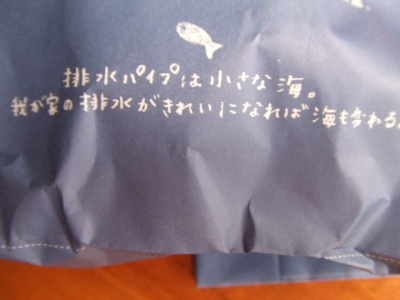 排水パイプは小さな海。
我が家の排水がきれいになれば海も変わる。